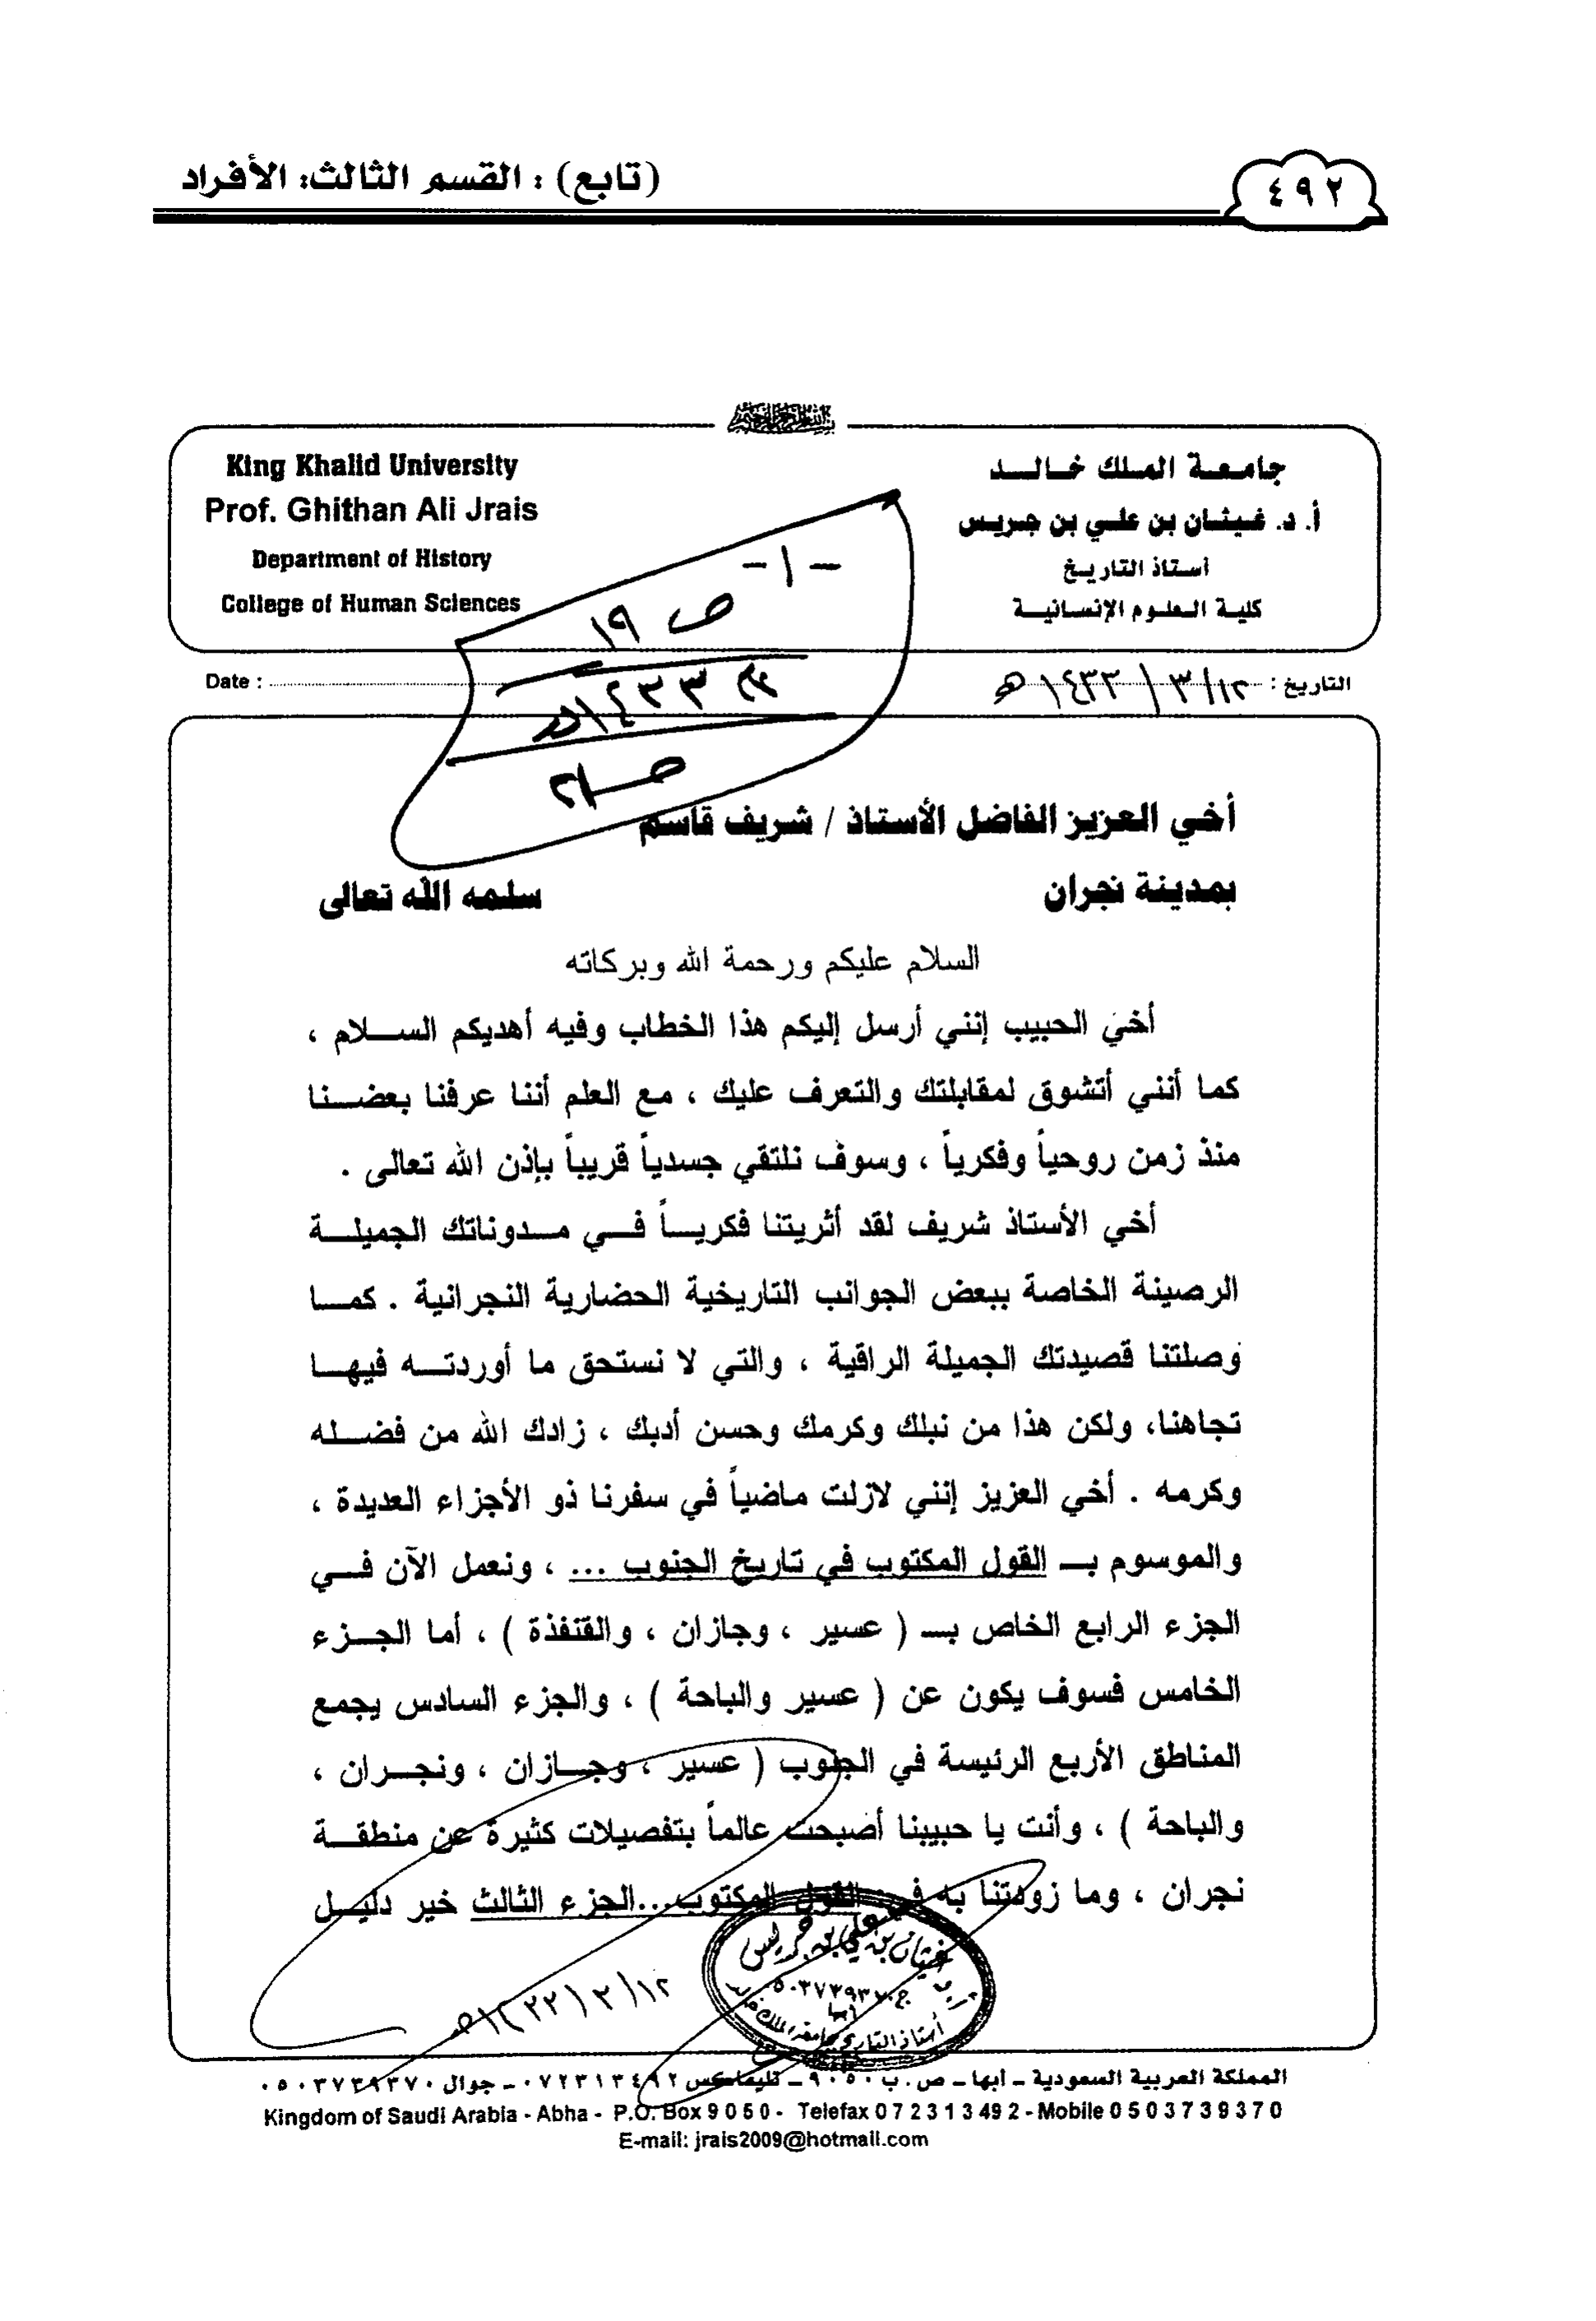 ٤٩٢
(تابع) : القسم الثالث: الأفراد
King Khalid University
Prof. Ghithan Ali Jrais
Department of History
College of Human Sciences
جامعة الملك خالد
أ. د. غيثان بن علي بن جريس
أستاذ التاريخ
كلية العلوم الإنسانية
- ١ -
ص ١٩
١٤٣٣هـ
Date :
التاريخ : ١٢/ ٣/ ١٤٣٣هـ
أخي العزيز الفاضل الأستاذ / شريف قاسم
بمدينة نجران سلمه الله تعالى
السلام عليكم ورحمة الله وبركاته
أخي الحبيب إنني أرسل إليكم هذا الخطاب وفيه أهديكم السلام ،
كما أنني أتشوق لمقابلتك والتعرف عليك ، مع العلم أننا عرفنا بعضنا
منذ زمن روحياً وفكرياً ، وسوف نلتقي جسدياً قريباً بإذن الله تعالى .
أخي الأستاذ شريف لقد أثريتنا فكرياً في مدوناتك الجميلة
الرصينة الخاصة ببعض الجوانب التاريخية الحضارية النجرانية . كما
وصلتنا قصيدتك الجميلة الراقية ، والتي لا نستحق ما أوردته فيها
تجاهنا، ولكن هذا من نبلك وكرمك وحسن أدبك ، زادك الله من فضله
وكرمه . أخي العزيز إنني لازلت ماضياً في سفرنا ذو الأجزاء العديدة ،
والموسوم بـ القول المكتوب في تاريخ الجنوب ... ، ونعمل الآن في
الجزء الرابع الخاص بـ ( عسير ، وجازان ، والقنفذة ) ، أما الجزء
الخامس فسوف يكون عن ( عسير والباحة ) ، والجزء السادس يجمع
المناطق الأربع الرئيسة في الجنوب ( عسير ، وجازان ، ونجران ،
والباحة ) ، وأنت يا حبيبنا أصبحت عالماً بتفصيلات كثيرة عن منطقة
نجران ، وما زودتنا به في القول المكتوب...الجزء الثالث خير دليل
غيثان بن علي بن جريس
أبها
أستاذ التاريخ بجامعة الملك خالد
١٢/ ٣/ ١٤٣٣هـ
المملكة العربية السعودية – ابها – ص. ب ٩٠٥٠ – تليفاكس ٠٧٢٣١٣٤٩٢ – جوال ٠٥٠٣٧٣٩٣٧٠
Kingdom of Saudi Arabia - Abha - P.O. Box 9 0 5 0 - Telefax 0 7 2 3 1 3 49 2 - Mobile 0 5 0 3 7 3 9 3 7 0
E-mail: jrais2009@hotmail.com